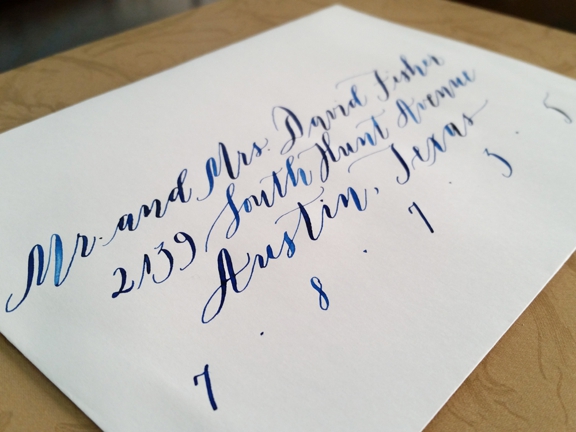 Mr. and Mrs. David Fisher
2139 South Hunt Avenue
Austin, Texas
7 · 8 · 7 · 3 · 5